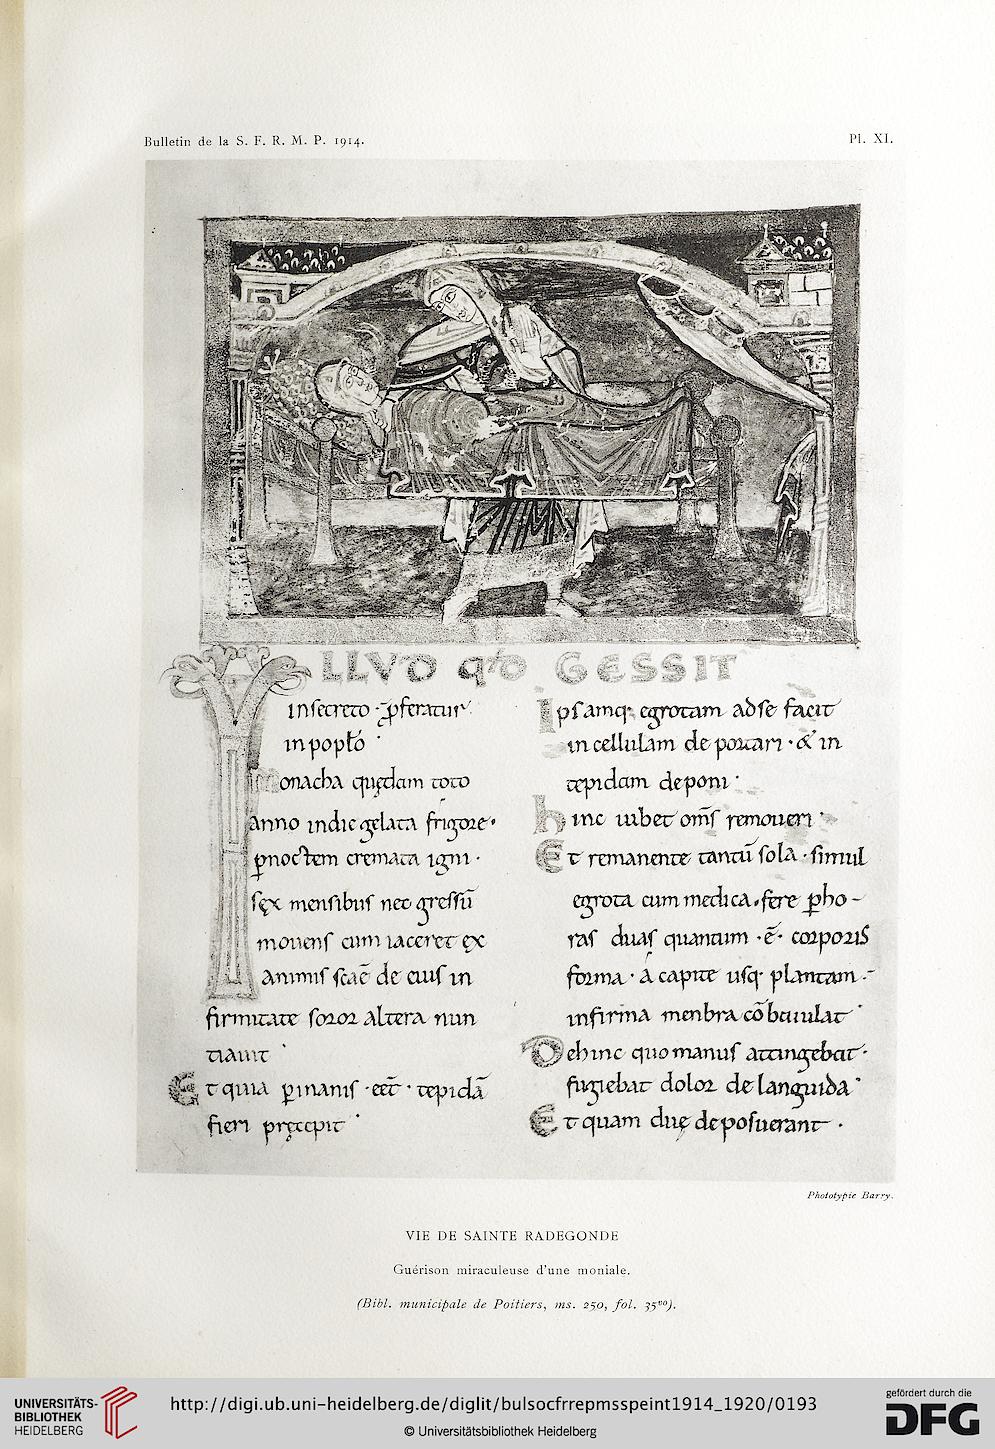 Bulletin de la S. F. R. M. P. 1914.
Pl. XI.
ILLVD q̇d GESSIT
in secreto ꝓferatur
in poplo
Monacha quędam toto
anno indie gelata frigore.
ꝑnoctem cremata igni.
sex mensibus nec gressū
mouens cum iaceret ex
animis scāe de eius in
firmitate soror altera nun
tiauit
Et quia ꝑ inanis eēt tepidā
fieri pręcepit
Ipsamq; egrotam ad se facit
in cellulam deportari & in
tepidam deponi
hinc iubet oms̄ remoueri
Et remanente tantū sola simul
egrota cum medica, fere ꝑ ho-
ras duas quantum ē corporis
forma a capite usq; plantam
infirma menbra cōbaiulat
Dehinc quo manus attingebat
fugiebat dolor de languida
Et quam duę deposuerant.
Phototypie Barry.
VIE DE SAINTE RADEGONDE
Guérison miraculeuse d'une moniale.
(Bibl. municipale de Poitiers, ms. 250, fol. 35vo).
UNIVERSITÄTS-
BIBLIOTHEK
HEIDELBERG
http://digi.ub.uni-heidelberg.de/diglit/bulsocfrrepmsspeint1914_1920/0193
© Universitätsbibliothek Heidelberg
gefördert durch die
DFG